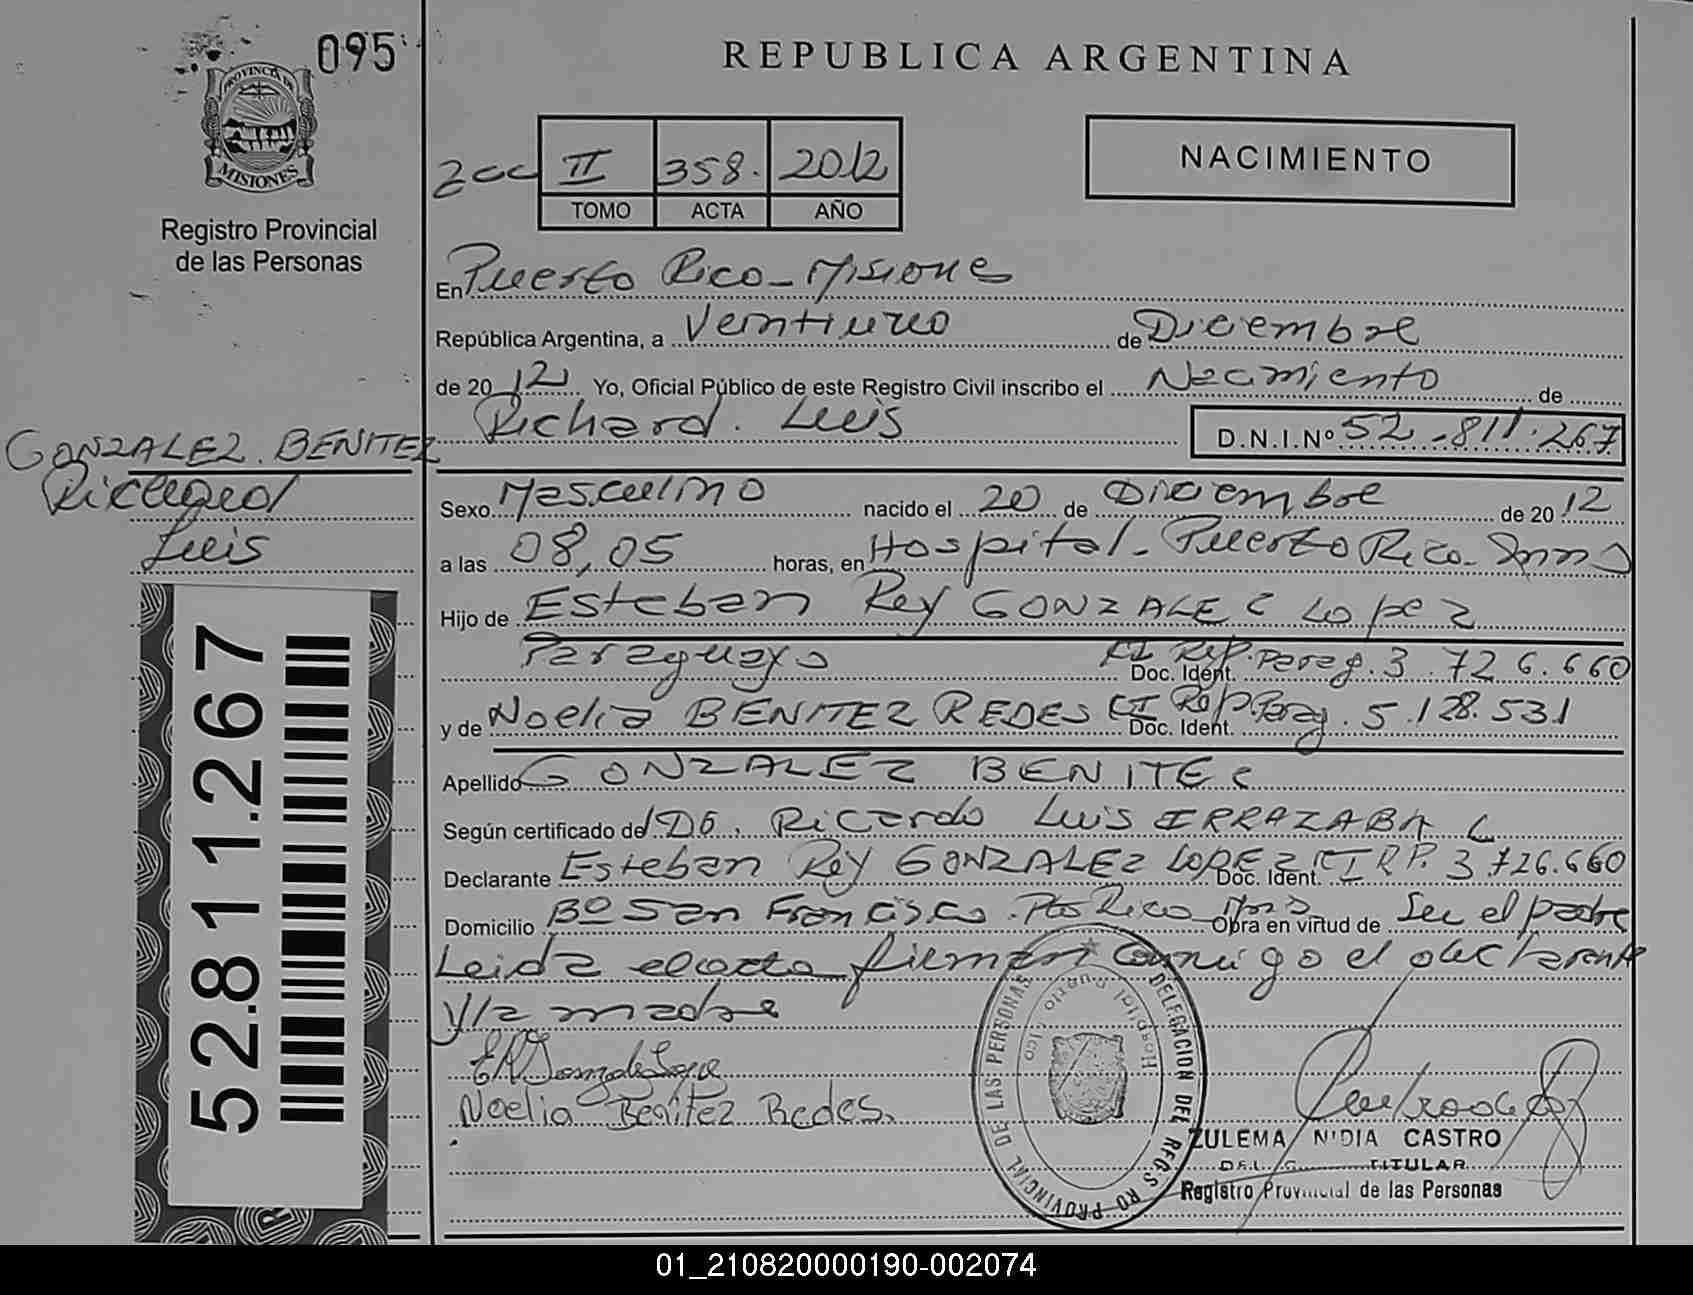 095
PROVINCIA DE
MISIONES
Registro Provincial
de las Personas
REPUBLICA ARGENTINA
II 358. 2012
TOMO ACTA AÑO
NACIMIENTO
En Puerto Rico - Misiones
República Argentina, a Veintiuno de Diciembre
de 2012 Yo, Oficial Público de este Registro Civil inscribo el Nacimiento de
Richard. Luis D.N.I.Nº 52.811.267
GONZALEZ BENITEZ
Richard
Luis
Sexo Masculino nacido el 20 de Diciembre de 2012
a las 08,05 horas, en Hospital - Puerto Rico - Mnes
Hijo de Esteban Rey GONZALEZ Lopez
Paraguayo Doc. Ident. CI Rep. Parag. 3.726.660
y de Noelia BENITEZ REDES Doc. Ident. CI Rep. Parag. 5.128.531
Apellido GONZALEZ BENITEZ
Según certificado de Dr. Ricardo Luis IRRAZABAL
Declarante Esteban Rey GONZALEZ LOPEZ Doc. Ident. CI RP. 3.726.660
Domicilio Bº San Francisco. Pto Rico Mns Obra en virtud de Ser el padre
Leida el acta firman conmigo el declarante
y la madre
Noelia Benitez Redes.
52.811.267
DELEGACION DEL REGISTRO PROVINCIAL DE LAS PERSONAS
Hospital Puerto Rico
ZULEMA NIDIA CASTRO
TITULAR
Registro Provincial de las Personas
01_210820000190-002074